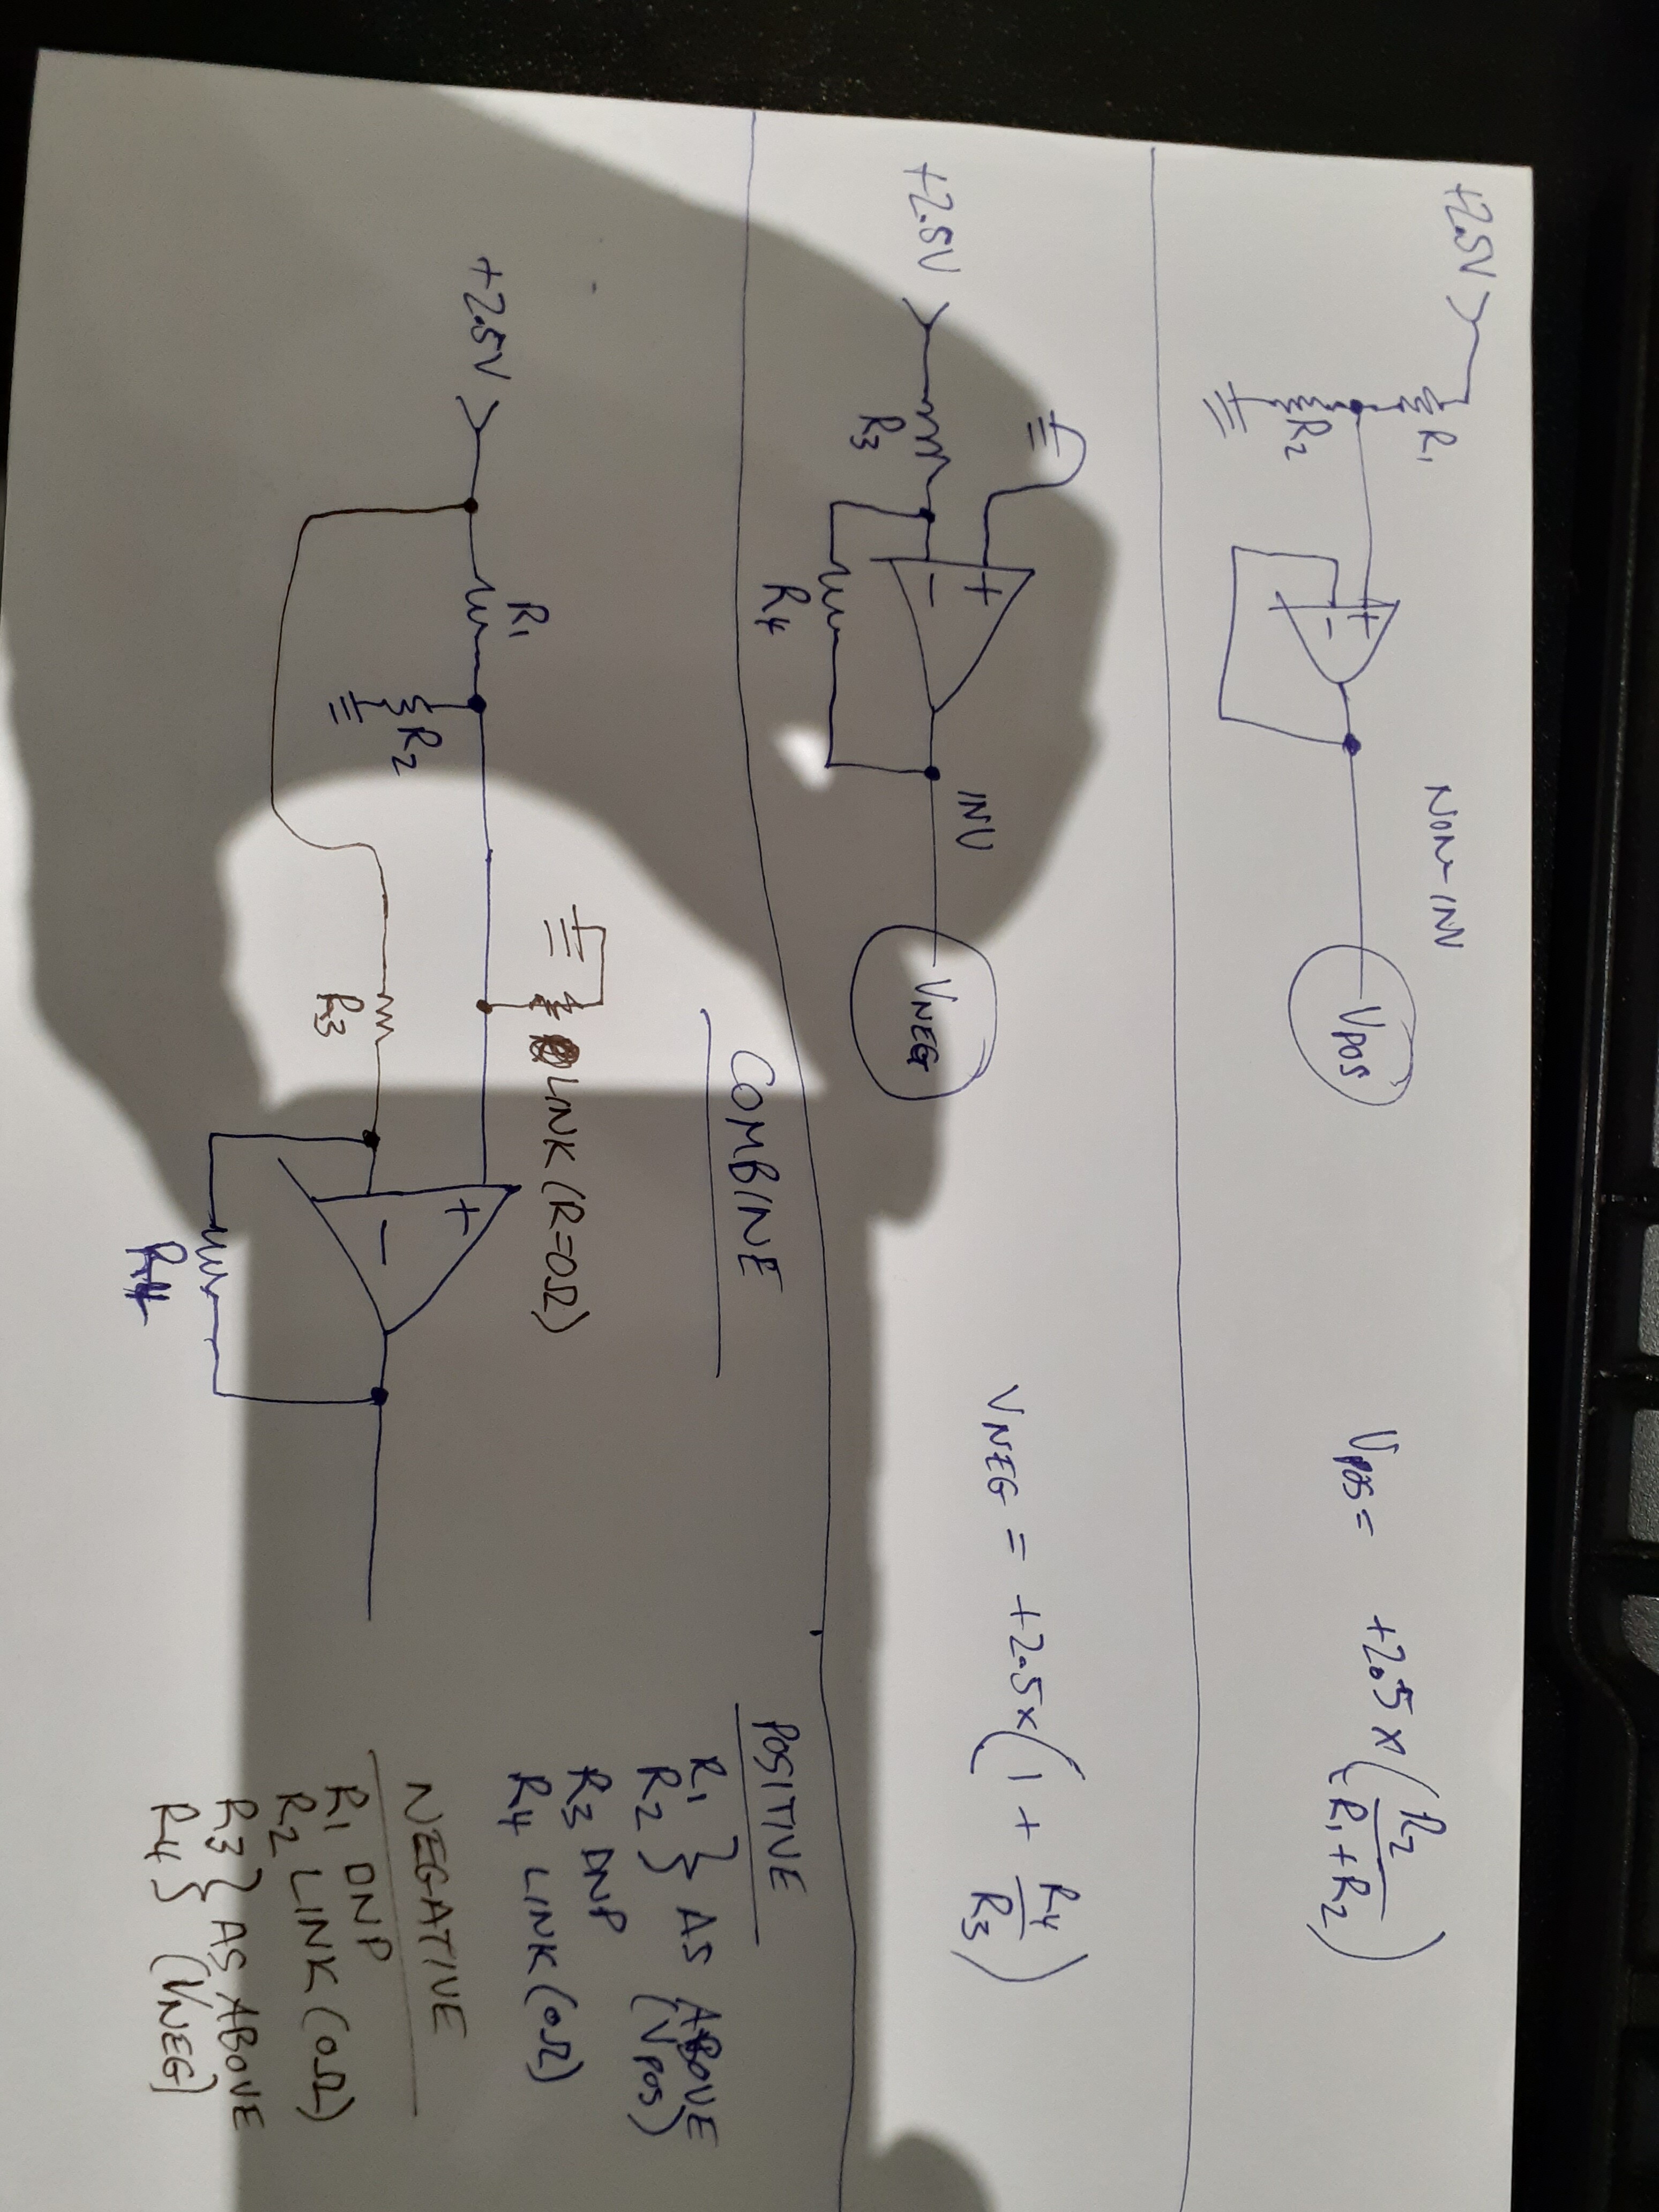 +2.5V
R1
R2
+
-
NON-INV
VPOS
VPOS = +2.5 x (R2 / R1+R2)
+2.5V
R3
+
-
R4
INV
VNEG
VNEG = +2.5 x (1 + R4/R3)
COMBINE
+2.5V
R1
R2
LINK (R=0Ω)
R3
+
-
R4
POSITIVE
R1
R2 } AS ABOVE (VPOS)
R3 DNP
R4 LINK (0Ω)
NEGATIVE
R1 DNP
R2 LINK (0Ω)
R3
R4 } AS ABOVE (VNEG)